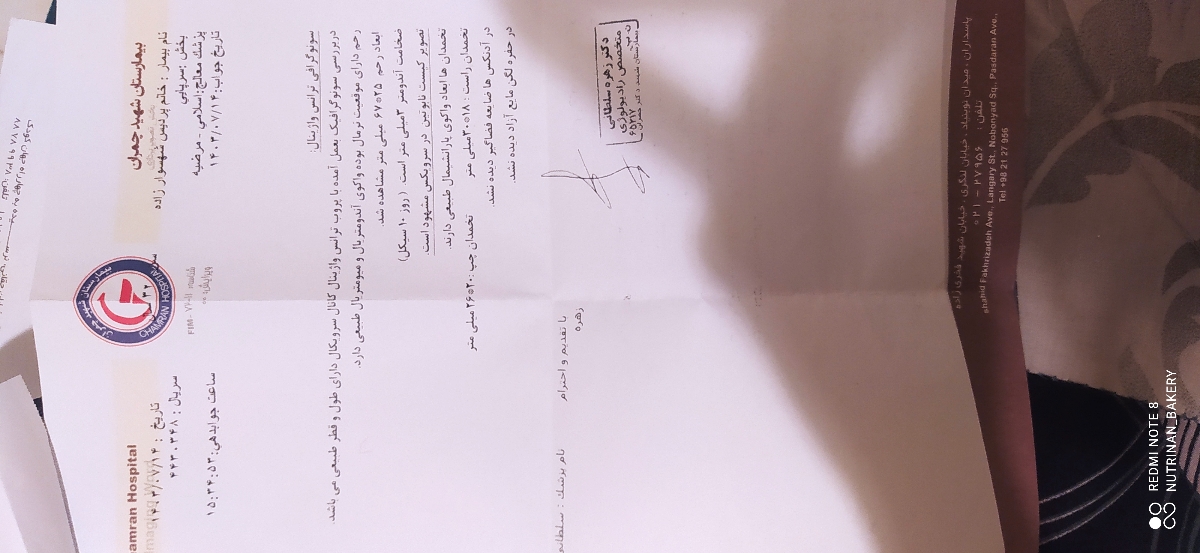 بیمارستان شهید چمران
Chamran Hospital
CHAMRAN HOSPITAL
نام بیمار : خانم پردیس شهسوار زاده
تاریخ : ۱۴۰۳/۰۷/۱۴
بخش : سرپایی
سریال : ۴۴۳۰۳۴۸
پزشک معالج: اسلامی مرضیه
FIM-
تاریخ جواب: ۱۴۰۳/۰۷/۱۴
ساعت جوابدهی: ۱۵:۳۴:۵۳
سونوگرافی ترانس واژینال:
دربررسی سونوگرافیک بعمل آمده با پروب ترانس واژینال کانال سرویکال دارای طول و قطر طبیعی می باشد
رحم دارای موقعیت نرمال بوده واکوی آندومتریال و میومتریال طبیعی دارد.
ابعاد رحم ۲۵*۶۷ میلی متر مشاهده شد.
ضخامت آندومتر ۴میلی متر است (روز ۱۰ سیکل)
تصویر کیست نابوتین در سرویکس مشهود است.
تخمدان ها ابعاد واکوی پارانشیمال طبیعی دارند.
تخمدان راست : ۱۸*۳۰میلی متر تخمدان چپ : ۲۰*۲۶ میلی متر
در آدنکس ها ضایعه فضاگیر دیده نشد.
در حفره لگن مایع آزاد دیده نشد.
با تقدیم و احترام
نام پزشک : سلطانی زهره
دکتر زهره سلطانی
متخصص رادیولوژی
پاسداران ، میدان نوبنیاد ، خیابان لنگری ، خیابان شهید فخری زاده
تلفن : ۲۷۹۵۶ - ۰۲۱
shahid Fakhrizadeh Ave., Langary St, Nobonyad Sq., Pasdaran Ave.,
Tel +98 21 27 956
REDMI NOTE 8
NUTRINAN_BAKERY